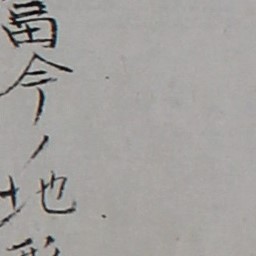 當今ノ地形